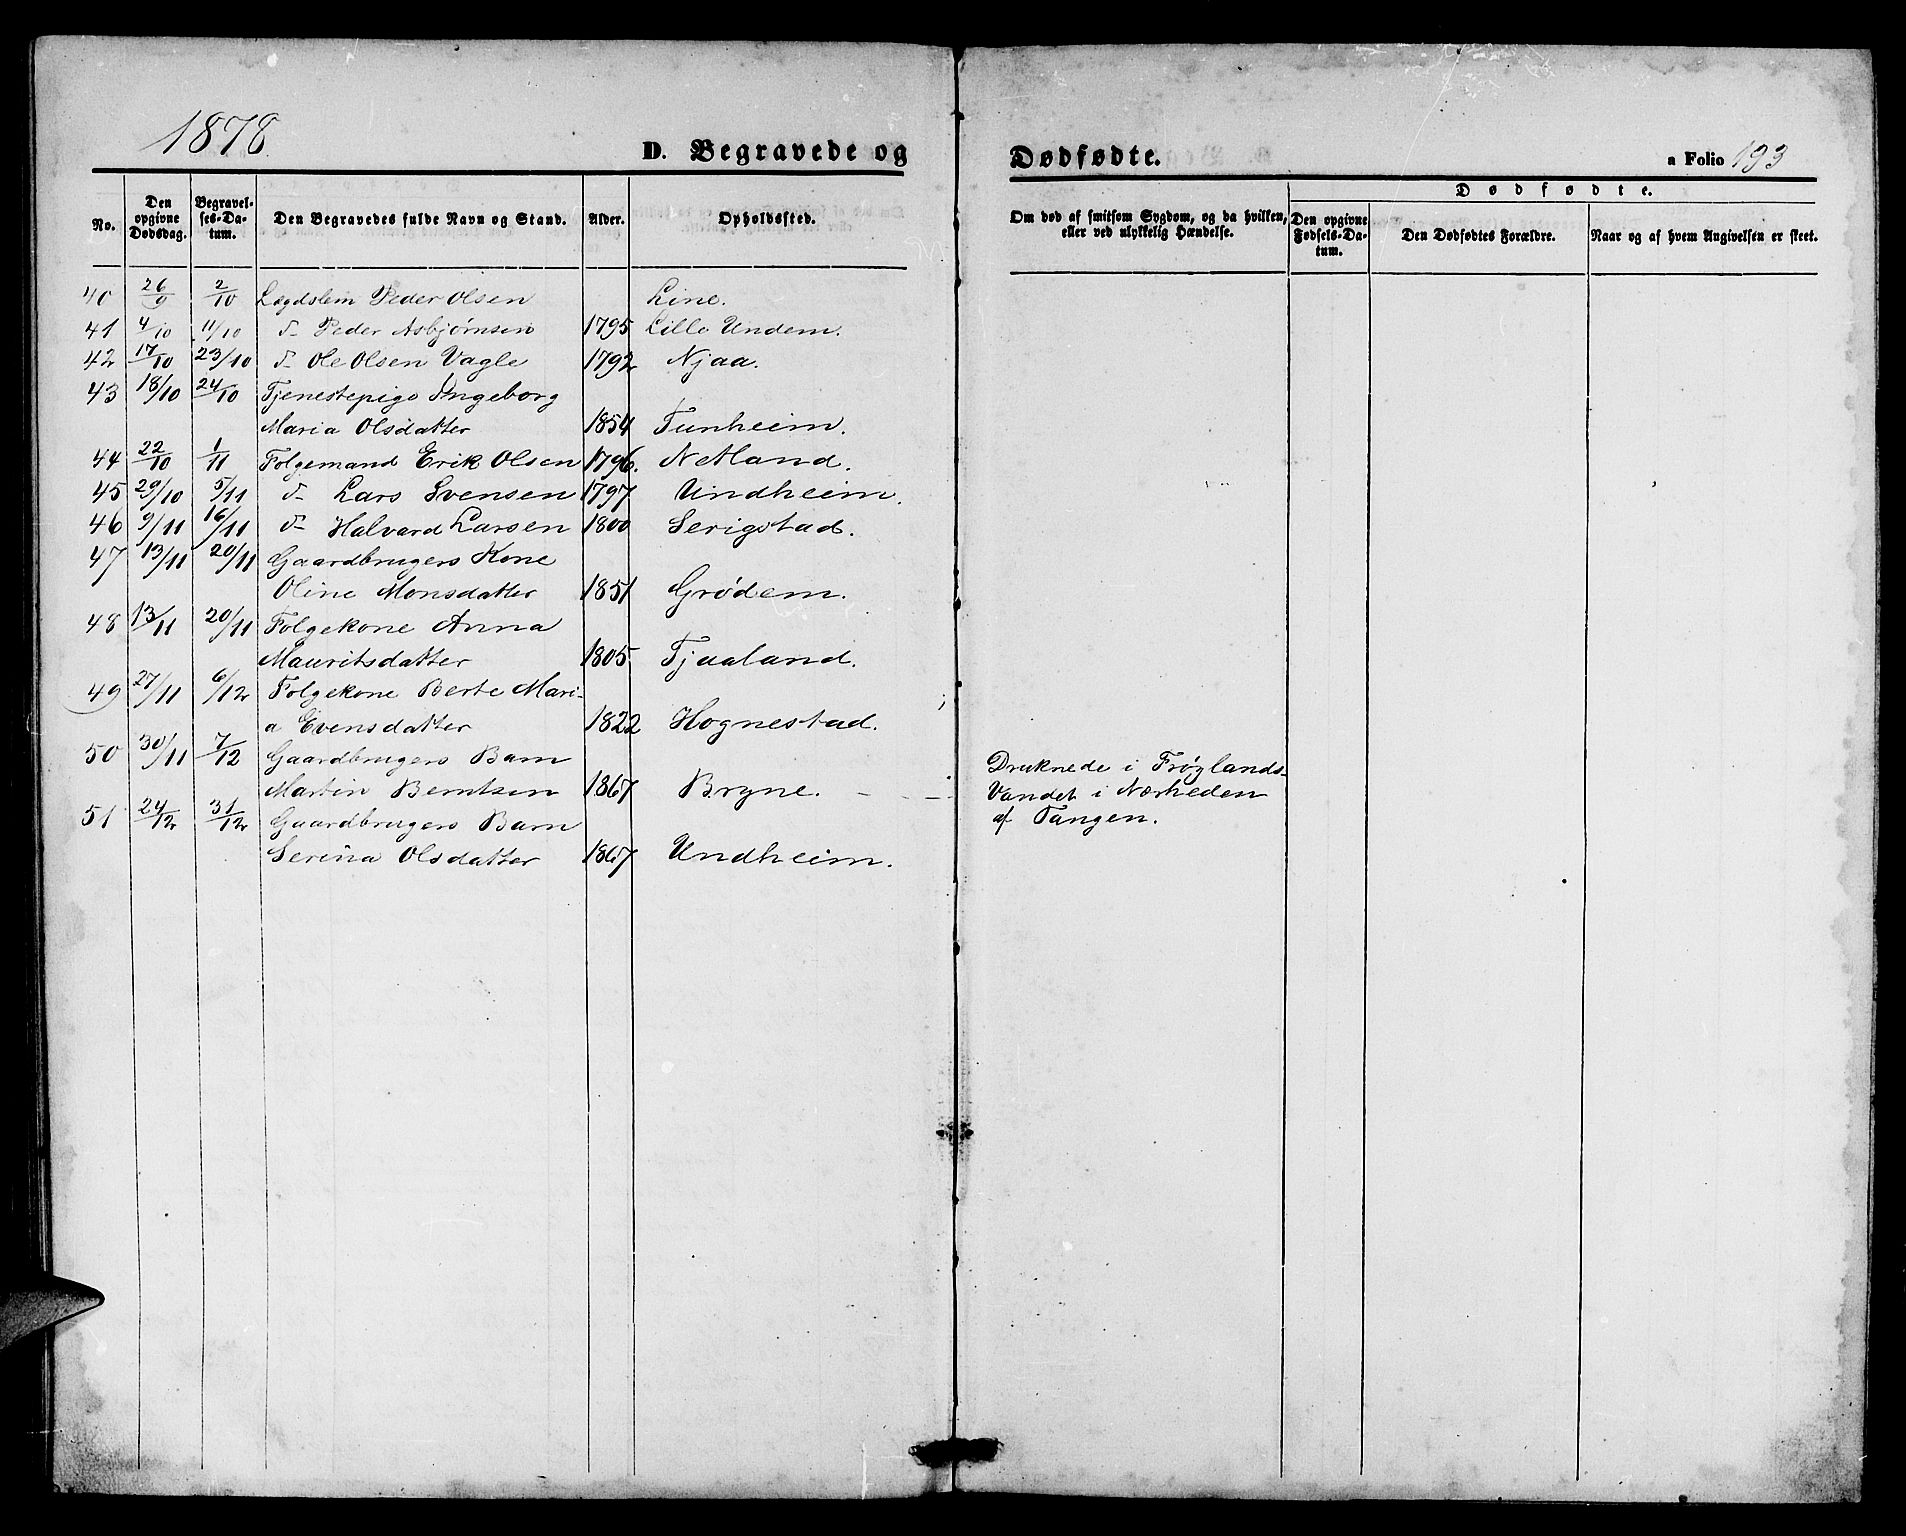 1878
D. Begravede og
Dødfødte.
a Folio 193
No.
Den opgivne Dødsdag.
Begravelses-Datum.
Den Begravedes fulde Navn og Stand.
Alder.
Opholdssted.
Om død af smitsom Sygdom, og da hvilken, eller ved ulykkelig Hændelse.
Dødfødte.
Den opgivne Fødsels-Datum.
Den Dødfødtes Forældre.
Naar og af hvem Angivelsen er skeet.
40 26/9 2/10 Lægdslem Peder Olsen Line.
41 4/10 11/10 d- Peder Asbjørnsen 1795 Lille Undem.
42 17/10 23/10 d- Ole Olsen Vagle 1792 Njaa.
43 18/10 24/10 Tjenestepige Ingeborg
Maria Olsdatter 1854 Tunheim.
44 22/10 1/11 Folgemand Erik Olsen 1796. Netland.
45 29/10 5/11 d- Lars Svensen 1797 Undheim.
46 9/11 16/11 d- Halvard Larsen 1800 Serigstad.
47 13/11 20/11 Gaardbrugers Kone
Oline Monsdatter 1851 Grødem.
48 13/11 20/11 Folgekone Anna
Mauritsdatter 1805 Tjaaland.
49 27/11 6/12 Folgekone Berte Mari-
a Evensdatter 1822 Hognestad.
50 30/11 7/12 Gaardbrugers Barn
Martin Berntsen 1867 Bryne. - - Druknede i Frøylands-
Vandet i Nærheden
af Tangen.
51 24/12 31/12 Gaardbrugers Barn
Serina Olsdatter 1867 Undheim.